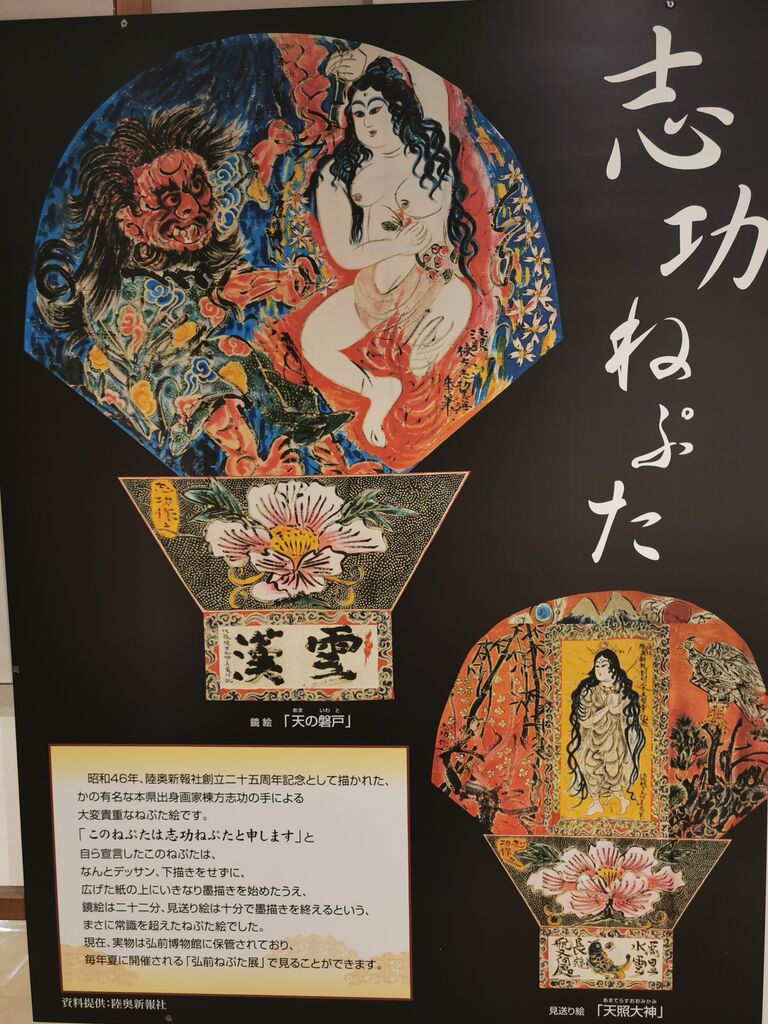 志功ねぷた
志功作
雲漢
鏡絵「天の磐戸」
あま いわと
昭和46年、陸奥新報社創立二十五周年記念として描かれた、
かの有名な本県出身画家棟方志功の手による
大変貴重なねぷた絵です。
「このねぷたは志功ねぷたと申します」と
自ら宣言したこのねぷたは、
なんとデッサン、下描きをせずに、
広げた紙の上にいきなり墨描きを始めたうえ、
鏡絵は二十二分、見送り絵は十分で墨描きを終えるという、
まさに常識を超えたねぷた絵でした。
現在、実物は弘前博物館に保管されており、
毎年夏に開催される「弘前ねぷた展」で見ることができます。
資料提供：陸奥新報社
あまてらすおおみかみ
見送り絵「天照大神」